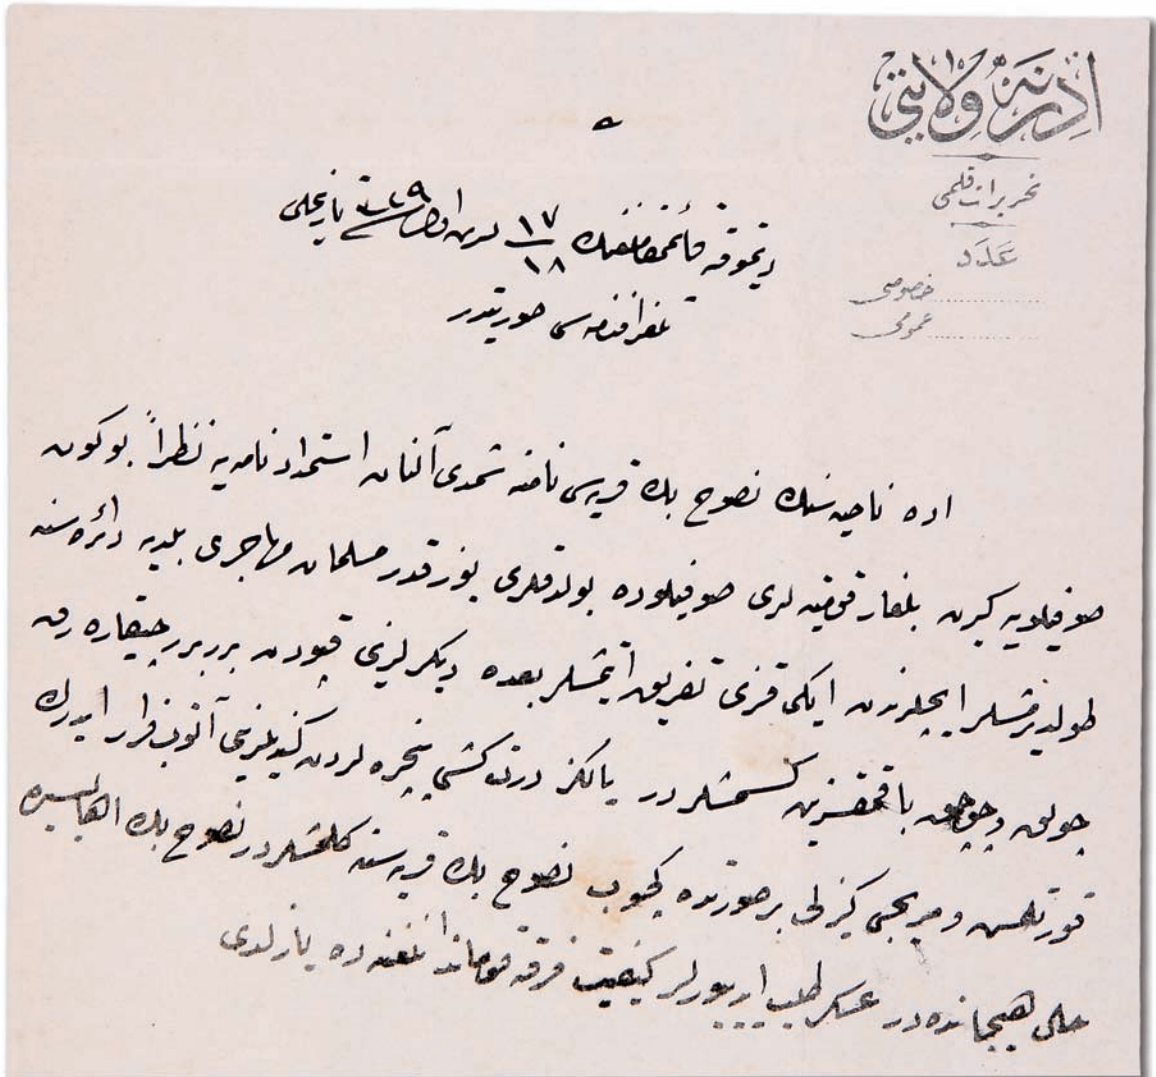 ادرنه ولايتی
تحريرات قلمی
عدد
خصوصی
عمومی
ديمتوقه قائممقاملغنك ١٧/١٨ اغستوس ٣٢٩ تاريخلی
تلغرافنامه سی صورتيدر
اده ناحيه سنك نصوح بك قريه سی نامنه شمدی آلنان استمداد نامه يه نظراً بوكون
صوفيلويه كيرن بلغار قوميته لری صوفيلوده بولدقلری يوز قدر مسلمان مهاجری بلديه دائره سنه
طولديرمشلر ايچلرندن ايكی قزی تفريق ايتمشلر بعده ديكرلرينی قپودن برر برر چيقاره رق
چولوق و چوجق باقمقسزين كسمشلردر يالكز درت كشی پنجره لردن كنديلرينی آتوب فرار ايدرك
قورتلمش و مريجی كيزلی بر صورتده كچوب نصوح بك قريه سنه كلمشلردر نصوح بك اهاليسی
حال هيجانده در عسكر طلب ايديورلر كيفيت فرقه قوماندانلغنه ده يازلدی